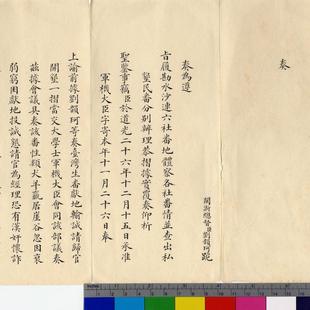 奏
閩浙總督臣劉韻珂跪
奏為遵
旨履勘水沙連六社番地體察各社番情並查出私
墾民番分別辦理恭摺據實覆奏仰祈
聖鑒事竊臣於道光二十六年十二月十五日承准
軍機大臣字寄本年十一月二十六日奉
上諭前據劉韻珂等奏臺灣生番獻地輸誠請歸官
開墾一摺當交大學士軍機大臣會同該部議奏
茲據會議具奏該番性類犬羊居崖谷忽因衰
弱窮困獻地投誠懇請官為經理恐有漢奸懷詐